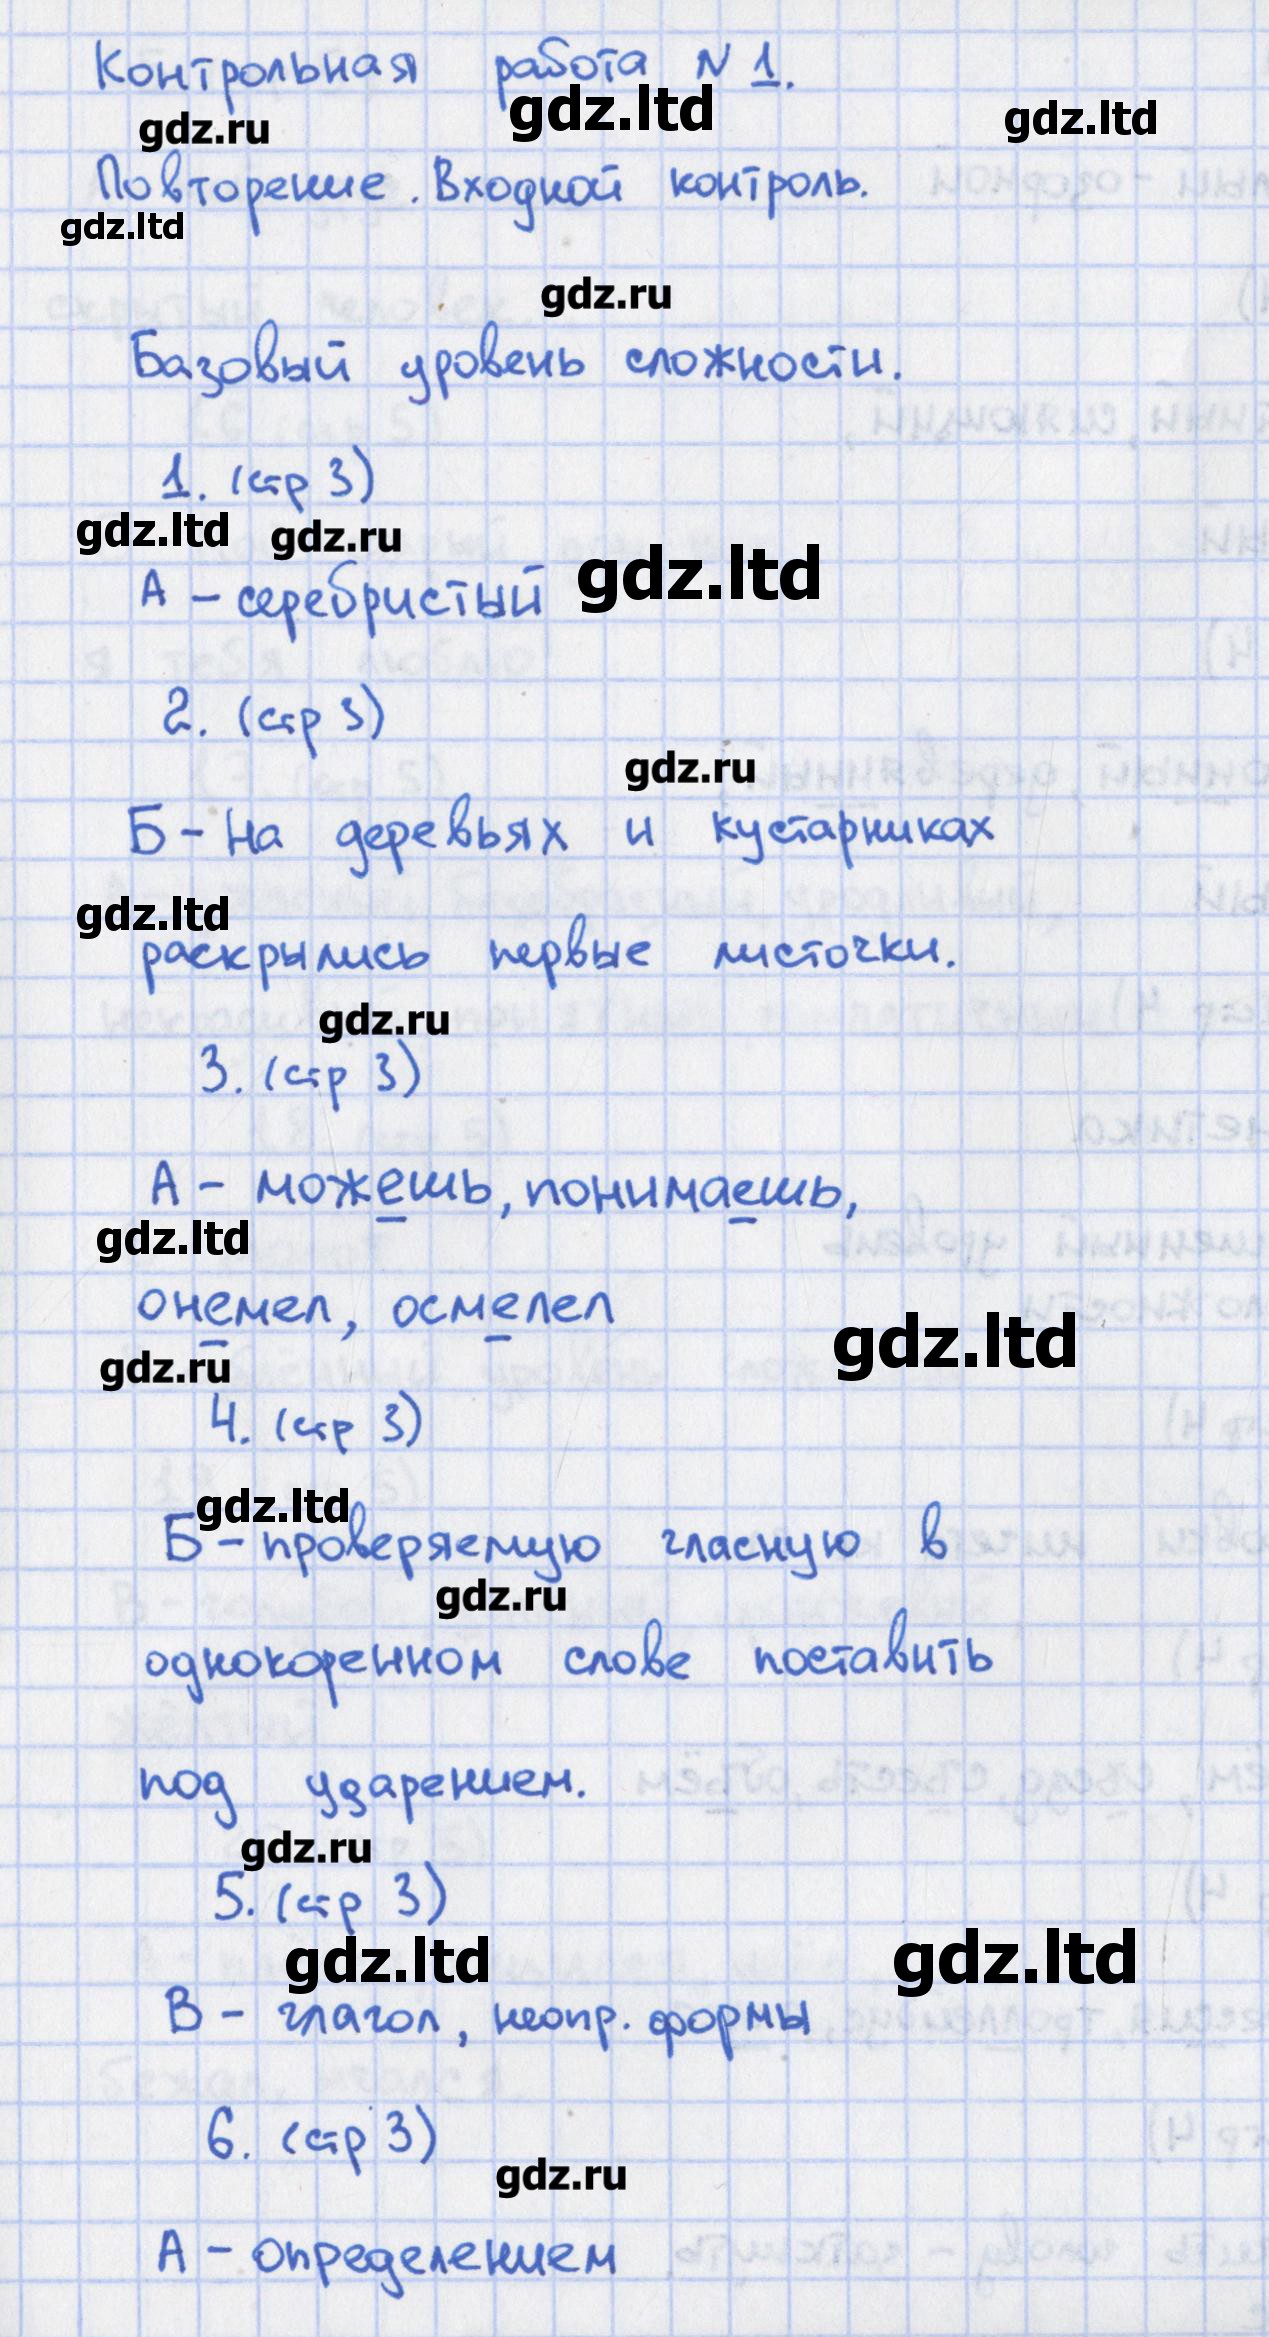 Контрольная работа N 1.
gdz.ru gdz.ltd gdz.ltd
Повторение. Входной контроль.
gdz.ltd
gdz.ru
Базовый уровень сложности.
1. (стр 3)
gdz.ltd gdz.ru gdz.ltd
А - серебристый
2. (стр 3)
gdz.ru
Б - На деревьях и кустарниках
gdz.ltd
раскрылись первые листочки.
gdz.ru
3. (стр 3)
А - можешь, понимаешь,
gdz.ltd
онемел, осмелел
gdz.ltd
gdz.ru
4. (стр 3)
gdz.ltd
Б - проверяемую гласную в
gdz.ru
однокоренном слове поставить
под ударением.
gdz.ru
5. (стр 3)
gdz.ltd gdz.ltd
В - глагол, неопр. формы
6. (стр 3)
gdz.ru
А - определением